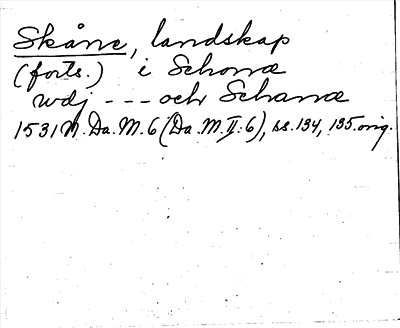 Skåne, landskap
(forts.) i Schonæ
wdj --- och Schanæ
1531 N. Da. M. 6 (Da. M. II: 6), ss. 134, 135. orig.